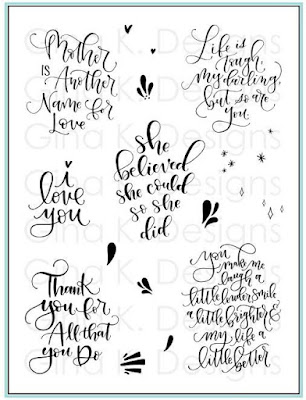 Mother
is Another
Name for
Love
Life is
tough,
my darling,
but so are
you
i
love
you
she
believed
she could
so she
did
Thank
you for
All that
you Do
you
make me
laugh a
little louder smile
a little brighter &
my life a
little better
Gina K. Designs
Gina K. Designs
Gina K. Designs
Gina K. Designs